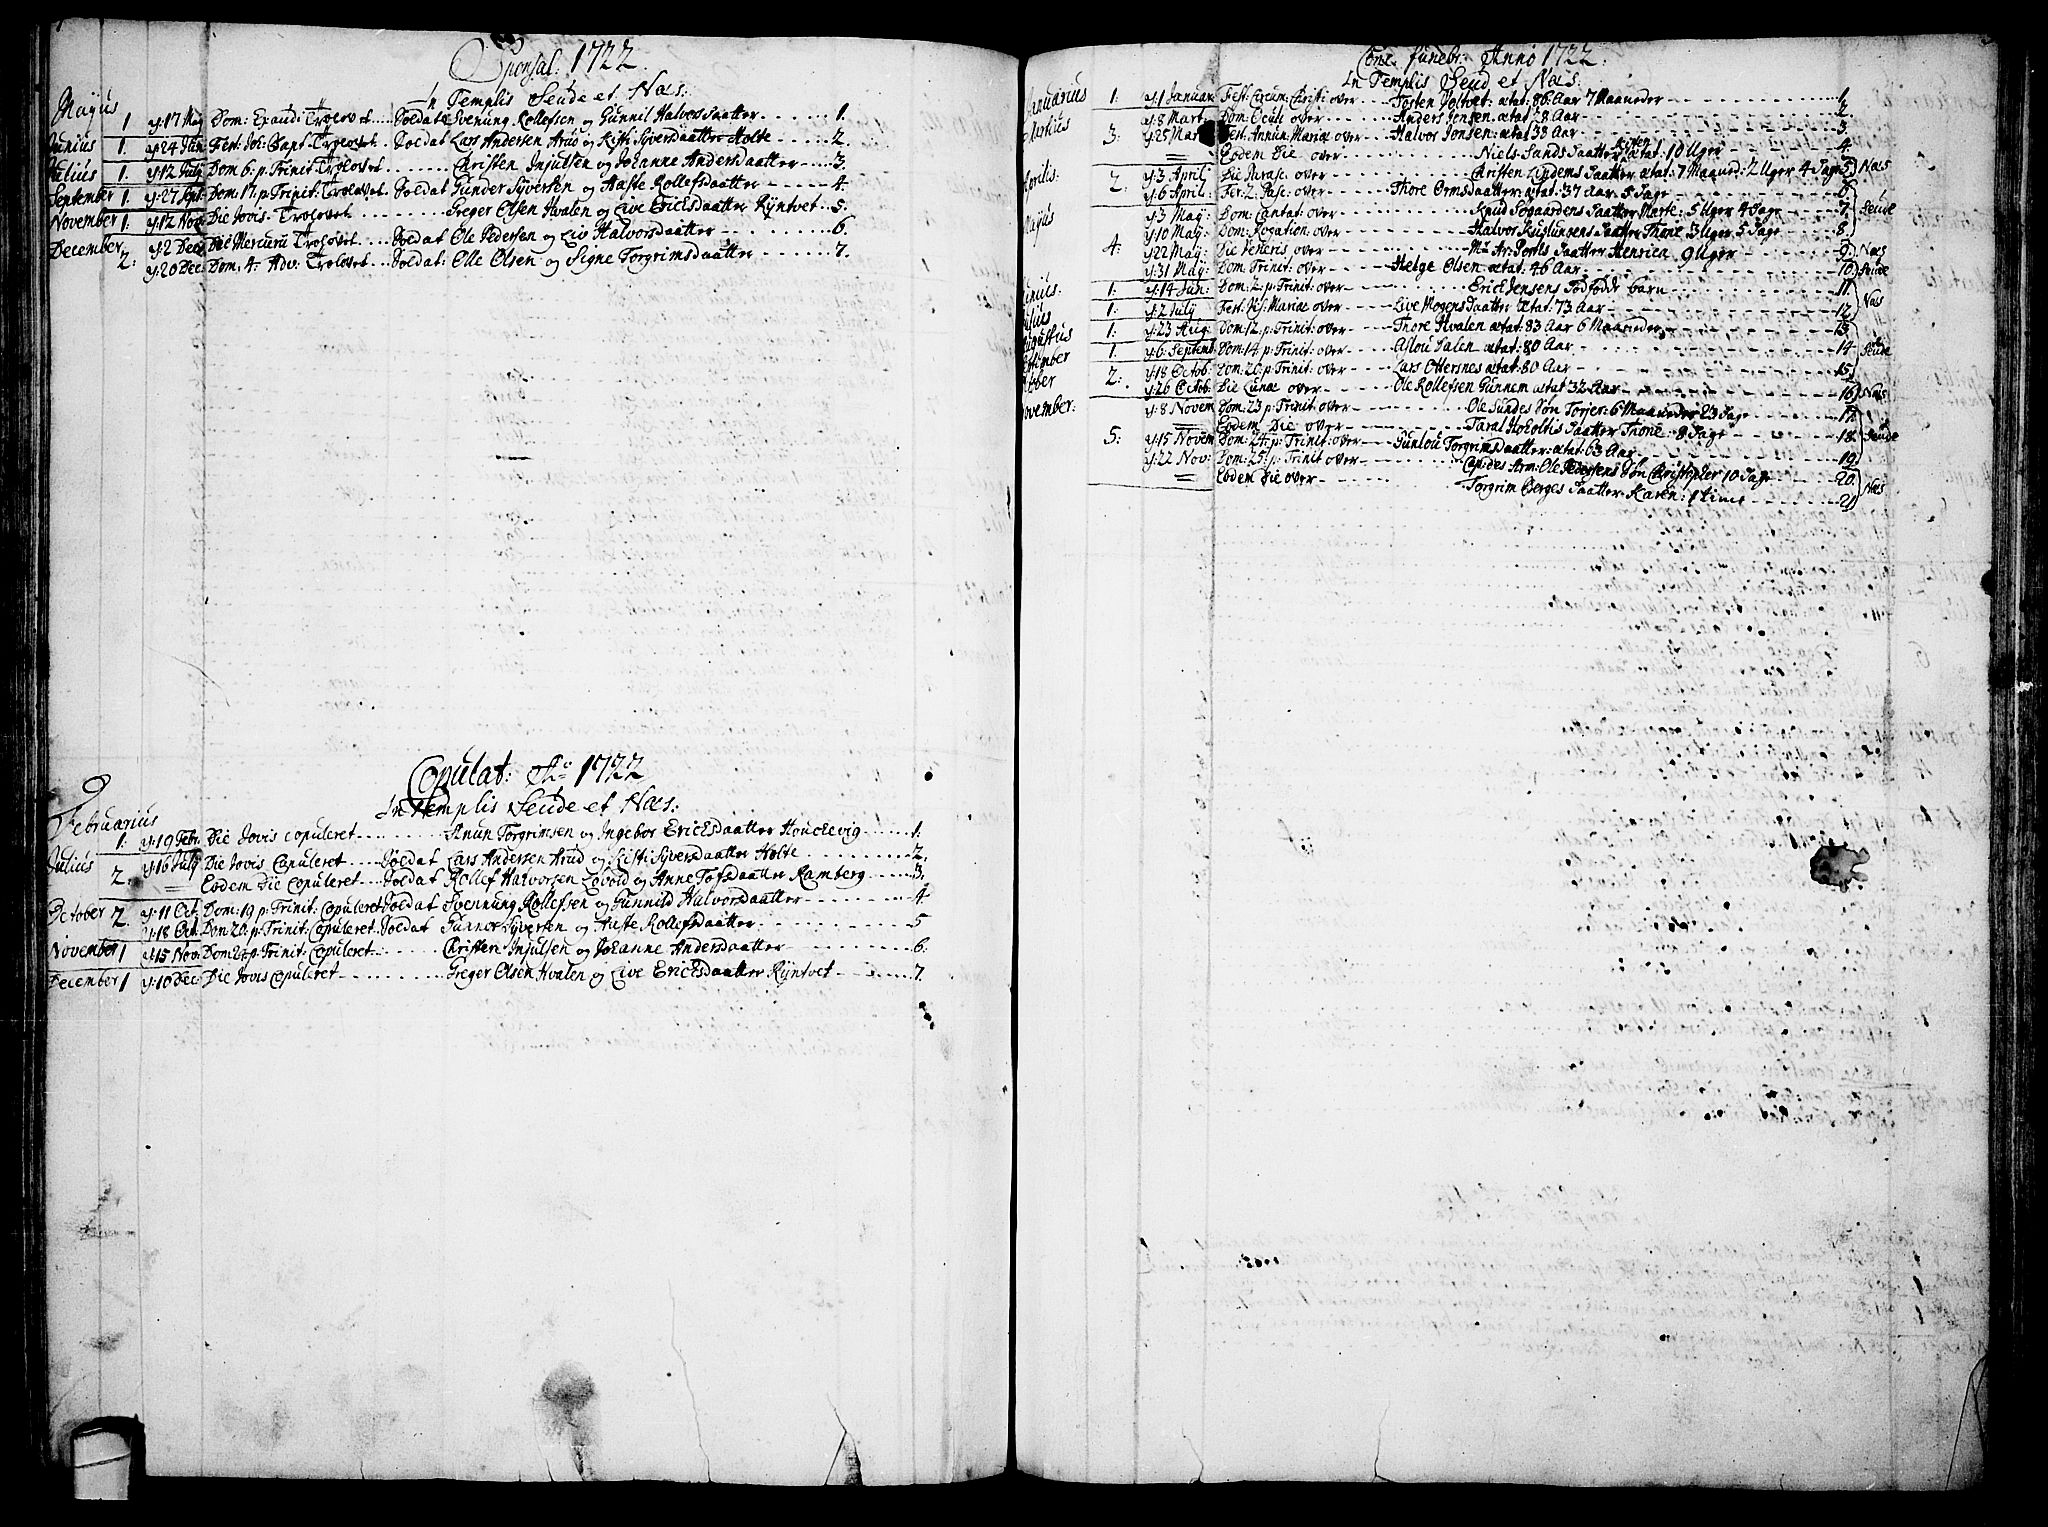 Sponsal: 1722.
In Templis Seude et Næs:
Mayus 1 y:17 May Dom: Exaudi Troelovet Soldat Svenung Rollefsen og Gunnil Halvorsdaatter 1.
Junius 1. y:24 Jun Fest: Joh: Bapt: Troelovet Soldat Lars Andersen Arud og Kisti Syversdaatter Holte 2.
Julius 1. y:12 July Dom: 6. p: Trinit Troelovet Christen Injulsen og Johanne Andersdaatter 3.
September 1 y:27 Sept: Dom: 17. p: Trinit: Troelovet Soldat Gunder Syversen og Aaste Rollefsdaatter 4.
November 1: y:12 Nov: Die Jovis Troelovet Greger Olsen Hvalen og Live Ericksdaatter Ryntvet 5.
December 2: y:2 Dec: Die Mercurii Troelovet Soldat Ole Pedersen og Liv Halvorsdaatter 6.
y:20 Dec: Dom: 4. Adv: Troelovet Soldat: Olle Olsen og Signe Torgrimsdaatter 7.
Copulat: Ao 1722
In Templis Seude et Næs:
Februarius 1: y:19 Febr: Die Jovis copuleret Anun Torgrimsen og Ingebor Ericksdaatter Houckevig 1.
Julius 2. y:16 July Die Jovis Copuleret Soldat Lars Andersen Arud og Kisti Syversdaatter Holte 2.
= Eodem Die Copuleret Soldat Rollef Halvorsen Lovold og Anne Tofsdaatter Ramberg 3.
October 2. y:11 Oct: Dom: 19 p: Trinit: Copuleret Soldat Svennung Rollefsen og Gunnild Halvorsdaatter 4
y:18 Oct: Dom 20. p: Trinit: Copuleret Soldat Gunner Syversen og Aaste Rollefsdaatter 5
November 1 y:15 Nov: Dom: 24 p: Trinit: Copuleret Christen Injulsen og Johanne Andersdaatter 6.
December 1 y:10 Dec: Die Jovis Copuleret Greger Olsen Hvalen og Live Ericksdaatter Ryntvet 7.
Conc. funebr: Anno 1722.
In Templis Seud et Næs:
Januarius 1: y:1 Januar Fest: Circum: Christi over Torsten ætat: 86: Aar 7 Maaneder 1
Martius 3: y:8 Mart: Dom: Oculi over Anders Jensen ætat 28 Aar 2.
y:25 Mart Fest: Annun: Mariæ over Halvor Jonsen: ætat: 38 Aar 3.
= Eodem Die over Niels Sands daatter ætat: 10 Uger 4.
Aprilis: 2: y:3 April Die Parasc: over Christen Lindems daatter ætat: 7 Maaned: 2 Uger 4 dage 5) Næs
y:6 April: Fer: 2. Pasc: over Thore Ormsdaatter: ætat: 37 Aar 5 dage 6.
Mayus y:3 May: Dom: Cantat: over Knud daatter Marte: 5 Uger 4 dage 7. Seude
y:10 May: Dom: Rogation: over Halvor daatter Thone 3 Uger: 5 dage 8.
4. y:22 May: Die Veneris over daatter Henrica 9 Uger 9. Næs
y:31 May: Dom: Trinit: over Helge Olsen ætat: 46 Aar 10. Seude
Junius. 1: y:14 Jun: Dom: 2. p: Trinit: over Erick Jensens dødfødde barn 11. Næs
Julius 1: y:2 July Fest: Vis: Mariæ over Live Mogensdaatter ætat: 73 Aar 12.
Augustus 1: y:23 Aug: Dom: 12. p: Trinit: over Thore Hvalen ætat: 83 Aar 6 Maaneder 13.
September 1. y:6. Septemb Dom: 14. p: Trinit: over Aslou Salen ætat: 80 Aar 14. Seude
October 2: y:18 Octob: Dom: 20. p: Trinit: over Lars Ottersnes ætat: 80 Aar 15.
y:26 Octob. Die Lunæ over Ole Rollefsen Gunnem ætat 32 Aar 16. Næs
November: y:8 Novem Dom: 23 p: Trinit over Ole Sundes Søn Torjer: 6 Maaneder 23 dage 17.
= Eodem Die over Taral daatter Thone 8 dage 18. Seude
5: y:15 Novem Dom: 24. p: Trinit: over Gunlou Torgrimsdaatter: ætat: 63 Aar 19.
y:22 Nov: Dom: 25. p: Trinit over Cap: des Arm: Ole Pedersens Søn Christopher 10 dage 20.
= Eodem Die over Torgrim Berges daatter Karen: 1 time 21. Næs